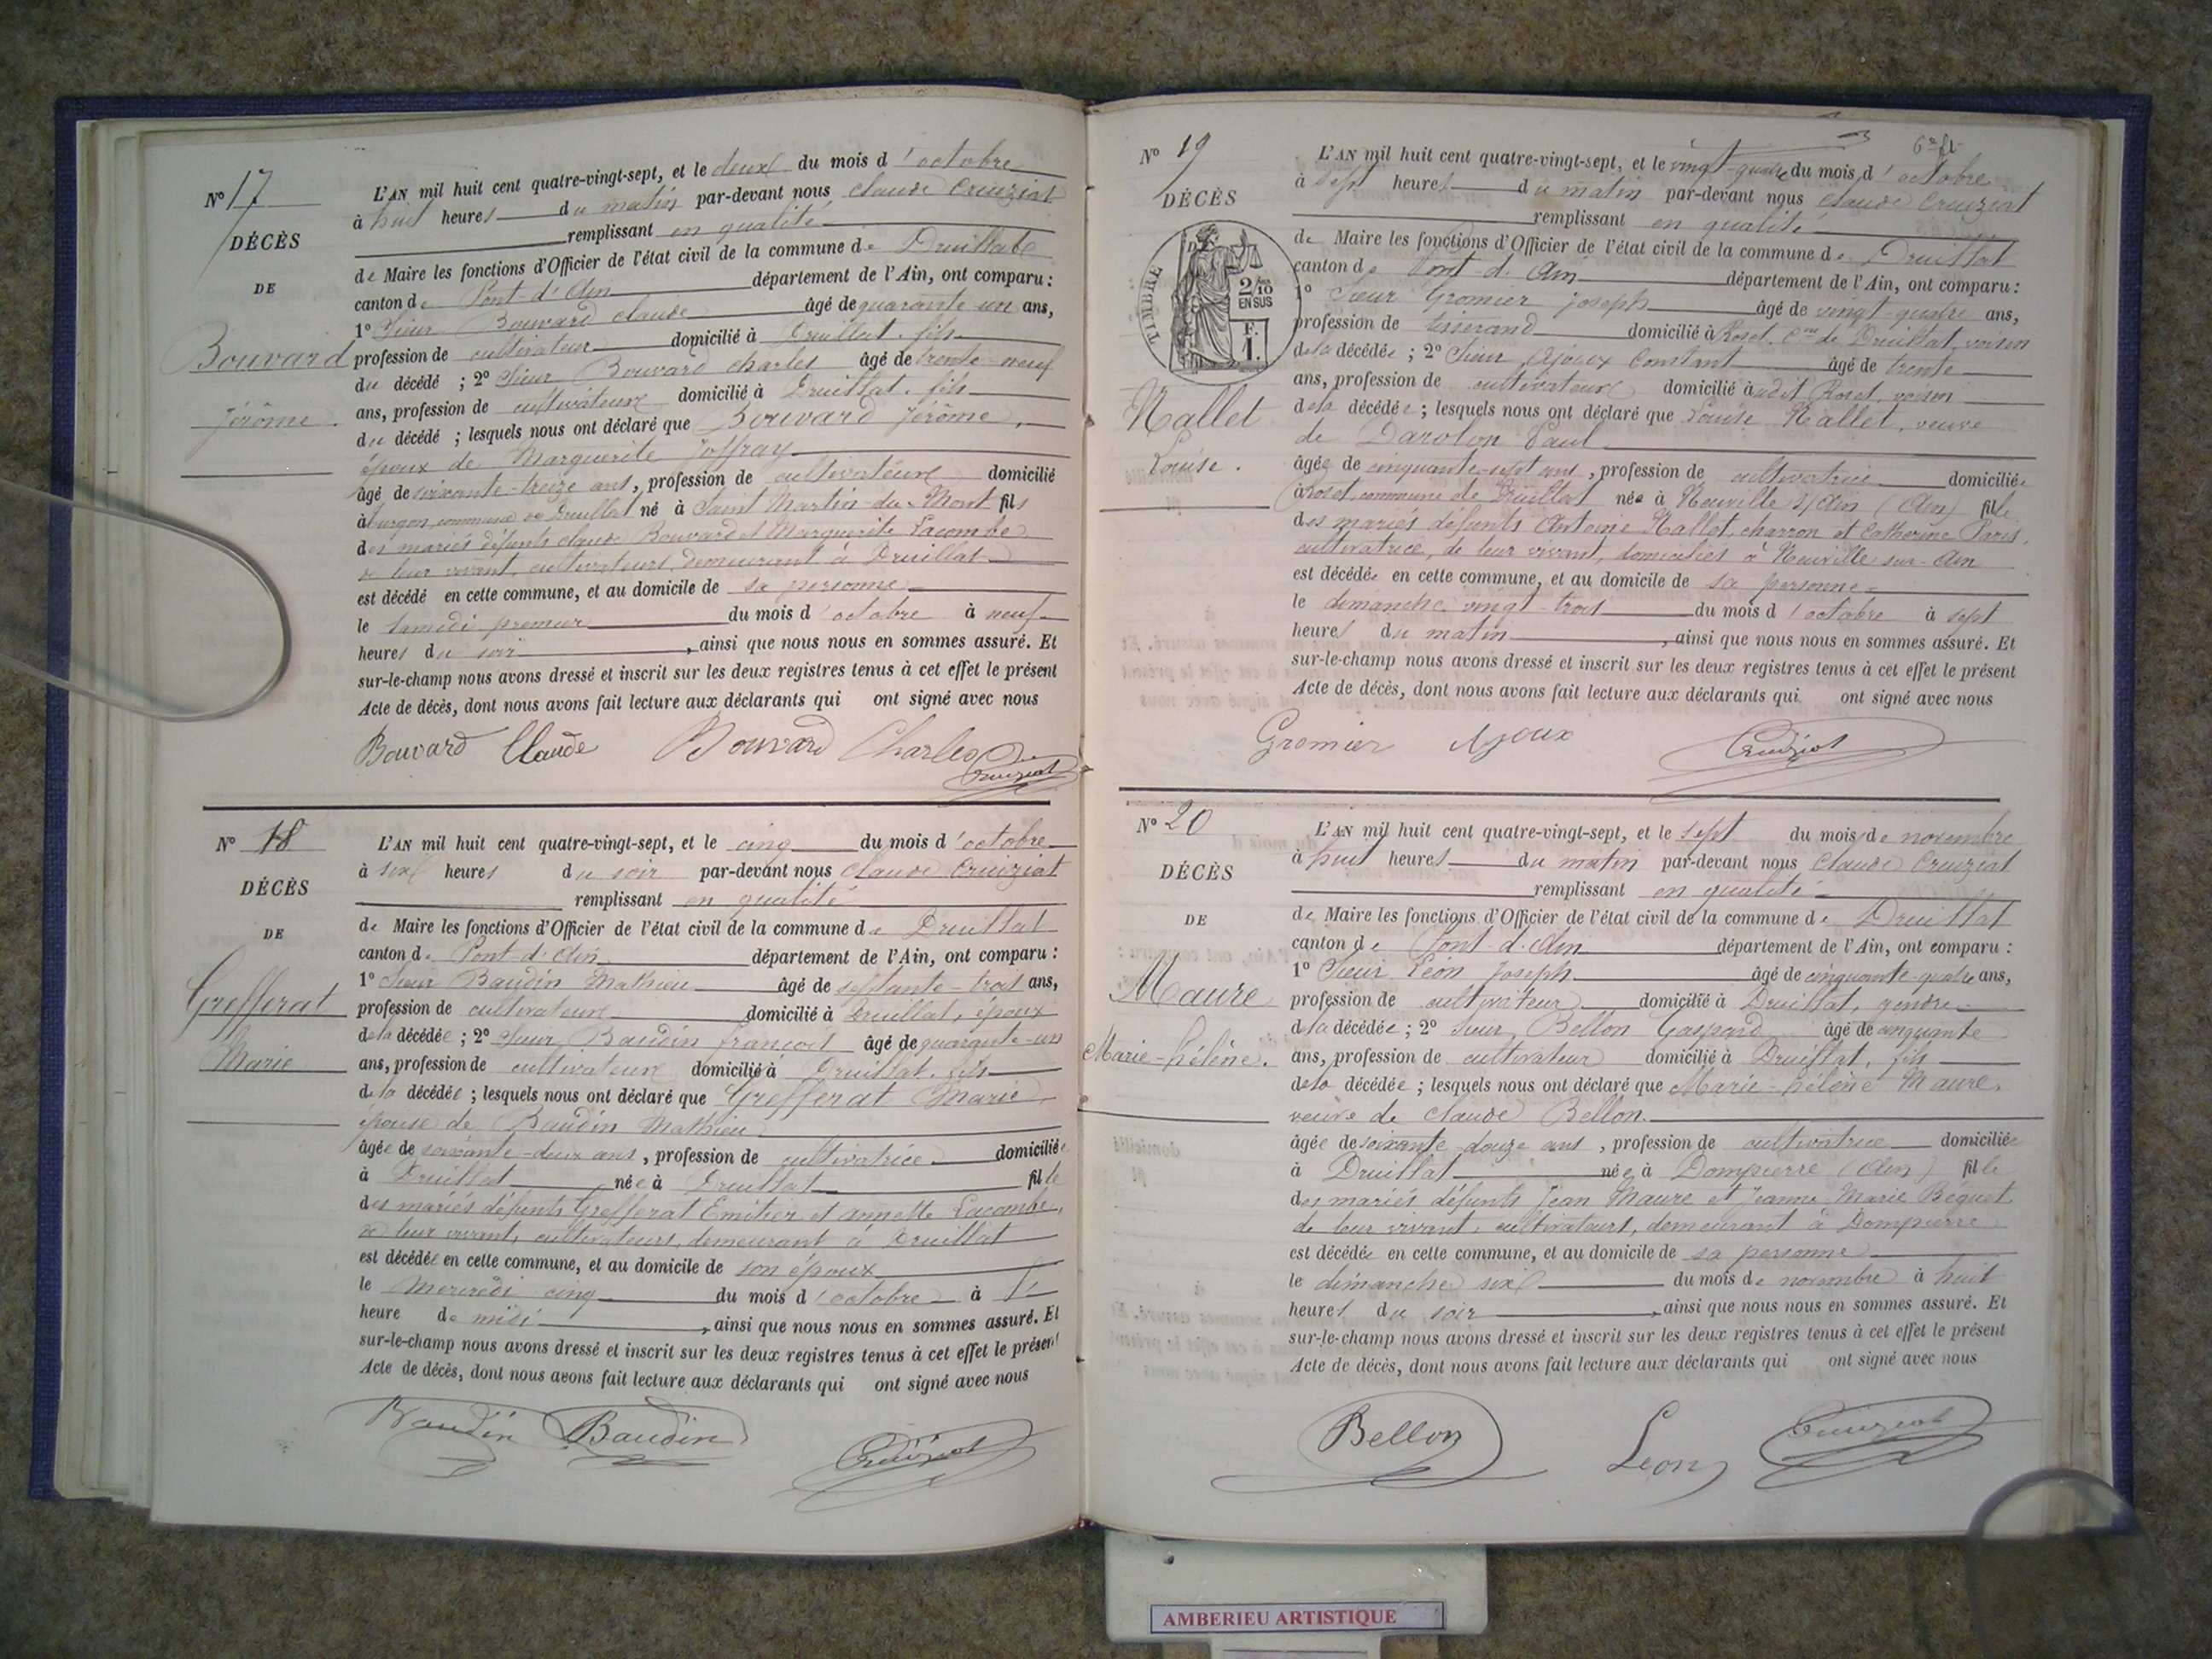 N° 17
DÉCÈS
DE
Bouvard
Jérôme.
L'AN mil huit cent quatre-vingt-sept, et le deux du mois d'octobre
à huit heures du matin par-devant nous Claude Cruiziat
remplissant en qualité
de Maire les fonctions d'Officier de l'état civil de la commune de Druillat
canton de Pont-d'Ain département de l'Ain, ont comparu :
1° Sieur Bouvard Claude âgé de quarante-un ans,
profession de cultivateur domicilié à Druillat, fils
du décédé ; 2° Sieur Bouvard Charles âgé de trente-neuf
ans, profession de cultivateur domicilié à Druillat, fils
du décédé ; lesquels nous ont déclaré que Bouvard Jérôme,
époux de Marguerite Joffray
âgé de soixante-treize ans, profession de cultivateur domicilié
à commune de Druillat né à Saint Martin-du-Mont fils
des mariés défunts Claude Bouvard et Marguerite Lacombe
de leur vivant, cultivateurs, demeurant à Druillat
est décédé en cette commune, et au domicile de sa personne
le samedi premier du mois d'octobre à neuf
heures du soir, ainsi que nous nous en sommes assuré. Et
sur-le-champ nous avons dressé et inscrit sur les deux registres tenus à cet effet le présent
Acte de décès, dont nous avons fait lecture aux déclarants qui ont signé avec nous
Bouvard Claude Bouvard Charles
Cruiziat
N° 18
DÉCÈS
DE
Grefferat
Marie
L'AN mil huit cent quatre-vingt-sept, et le cinq du mois d'octobre
à six heures du soir par-devant nous Claude Cruiziat
remplissant en qualité
de Maire les fonctions d'Officier de l'état civil de la commune de Druillat
canton de Pont-d'Ain département de l'Ain, ont comparu :
1° Sieur Baudin Mathieu âgé de septante-trois ans,
profession de cultivateur domicilié à Druillat, époux
de la décédée ; 2° Sieur Baudin François âgé de quarante-un
ans, profession de cultivateur domicilié à Druillat, fils
de la décédée ; lesquels nous ont déclaré que Grefferat Marie
épouse de Baudin Mathieu
âgée de soixante-deux ans, profession de cultivatrice domiciliée
à Druillat née à Druillat fille
des mariés défunts Grefferat Emilien et Annette Lacombe,
de leur vivant, cultivateurs, demeurant à Druillat
est décédée en cette commune, et au domicile de son époux
le mercredi cinq du mois d'octobre à l'
heure de midi, ainsi que nous nous en sommes assuré. Et
sur-le-champ nous avons dressé et inscrit sur les deux registres tenus à cet effet le présent
Acte de décès, dont nous avons fait lecture aux déclarants qui ont signé avec nous
Baudin Baudin
Cruiziat
6e ft
N° 19
DÉCÈS
TIMBRE
2/10
EN SUS
F.
1.
Nallet
Louise.
L'AN mil huit cent quatre-vingt-sept, et le vingt-quatre du mois d'octobre
à sept heures du matin par-devant nous Claude Cruiziat
remplissant en qualité
de Maire les fonctions d'Officier de l'état civil de la commune de Druillat
canton de Pont-d'Ain département de l'Ain, ont comparu :
1° Sieur Gromier Joseph âgé de vingt-quatre ans,
profession de tisserand domicilié à Roset, Cne de Druillat, voisin
de la décédée ; 2° Sieur Ajoux Constant âgé de trente
ans, profession de cultivateur domicilié audit Roset, voisin
de la décédée ; lesquels nous ont déclaré que Louise Nallet, veuve
de Darolon Paul
âgée de cinquante-sept ans, profession de cultivatrice domiciliée
à Roset, commune de Druillat née à Neuville s/Ain (Ain) fille
des mariés défunts Antoine Nallet, charron et Catherine Paris,
cultivatrice, de leur vivant, domiciliés à Neuville-sur-Ain
est décédée en cette commune, et au domicile de sa personne
le dimanche vingt-trois du mois d'octobre à sept
heures du matin, ainsi que nous nous en sommes assuré. Et
sur-le-champ nous avons dressé et inscrit sur les deux registres tenus à cet effet le présent
Acte de décès, dont nous avons fait lecture aux déclarants qui ont signé avec nous
Gromier Ajoux Cruiziat
N° 20
DÉCÈS
DE
Maure
Marie-hélène.
L'AN mil huit cent quatre-vingt-sept, et le sept du mois de novembre
à huit heures du matin par-devant nous Claude Cruiziat
remplissant en qualité
de Maire les fonctions d'Officier de l'état civil de la commune de Druillat
canton de Pont-d'Ain département de l'Ain, ont comparu :
1° Sieur Léon Joseph âgé de cinquante-quatre ans,
profession de cultivateur domicilié à Druillat, gendre
de la décédée ; 2° Sieur Bellon Gaspard âgé de cinquante
ans, profession de cultivateur domicilié à Druillat, fils
de la décédée ; lesquels nous ont déclaré que Marie-hélène Maure,
veuve de Claude Bellon.
âgée de soixante douze ans, profession de cultivatrice domiciliée
à Druillat née à Dompierre (Ain) fille
des mariés défunts Jean Maure et Jeanne Marie Beguet
de leur vivant, cultivateurs, demeurant à Dompierre
est décédée en cette commune, et au domicile de sa personne
le dimanche six du mois de novembre à huit
heures du soir, ainsi que nous nous en sommes assuré. Et
sur-le-champ nous avons dressé et inscrit sur les deux registres tenus à cet effet le présent
Acte de décès, dont nous avons fait lecture aux déclarants qui ont signé avec nous
Bellon Leon Cruiziat
AMBERIEU ARTISTIQUE